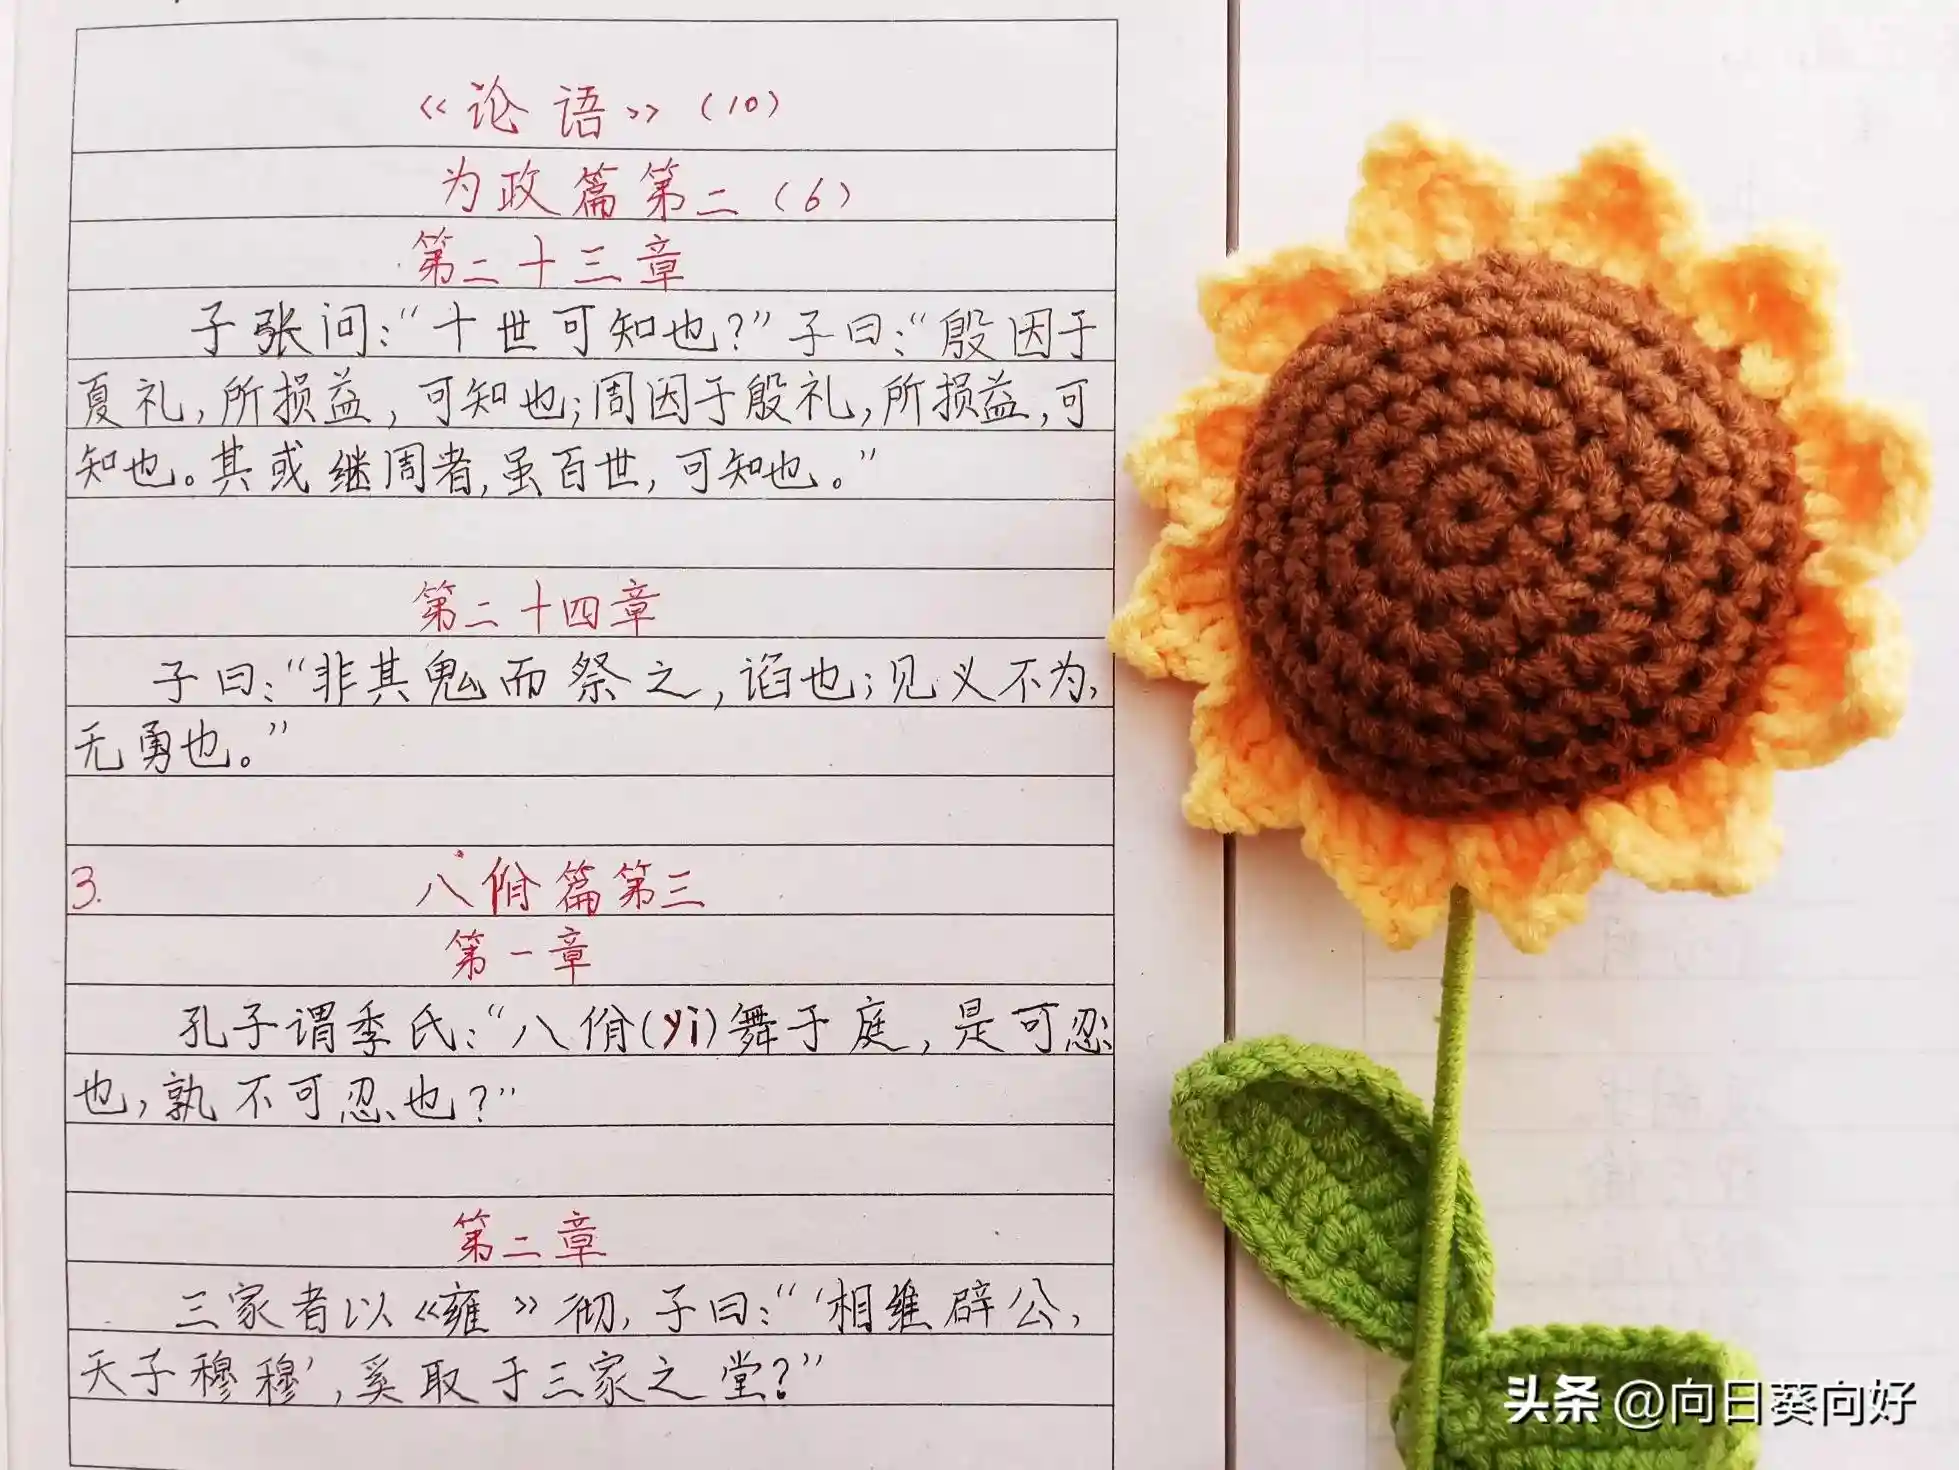 《论语》(10)
为政篇第二(6)
第二十三章
子张问:“十世可知也?”子曰:“殷因于
夏礼,所损益,可知也;周因于殷礼,所损益,可
知也。其或继周者,虽百世,可知也。”
第二十四章
子曰:“非其鬼而祭之,谄也;见义不为,
无勇也。”
3. 八佾篇第三
第一章
孔子谓季氏:“八佾(yì)舞于庭,是可忍
也,孰不可忍也?”
第二章
三家者以《雍》彻,子曰:“‘相维辟公,
天子穆穆’,奚取于三家之堂?”
头条@向日葵向好